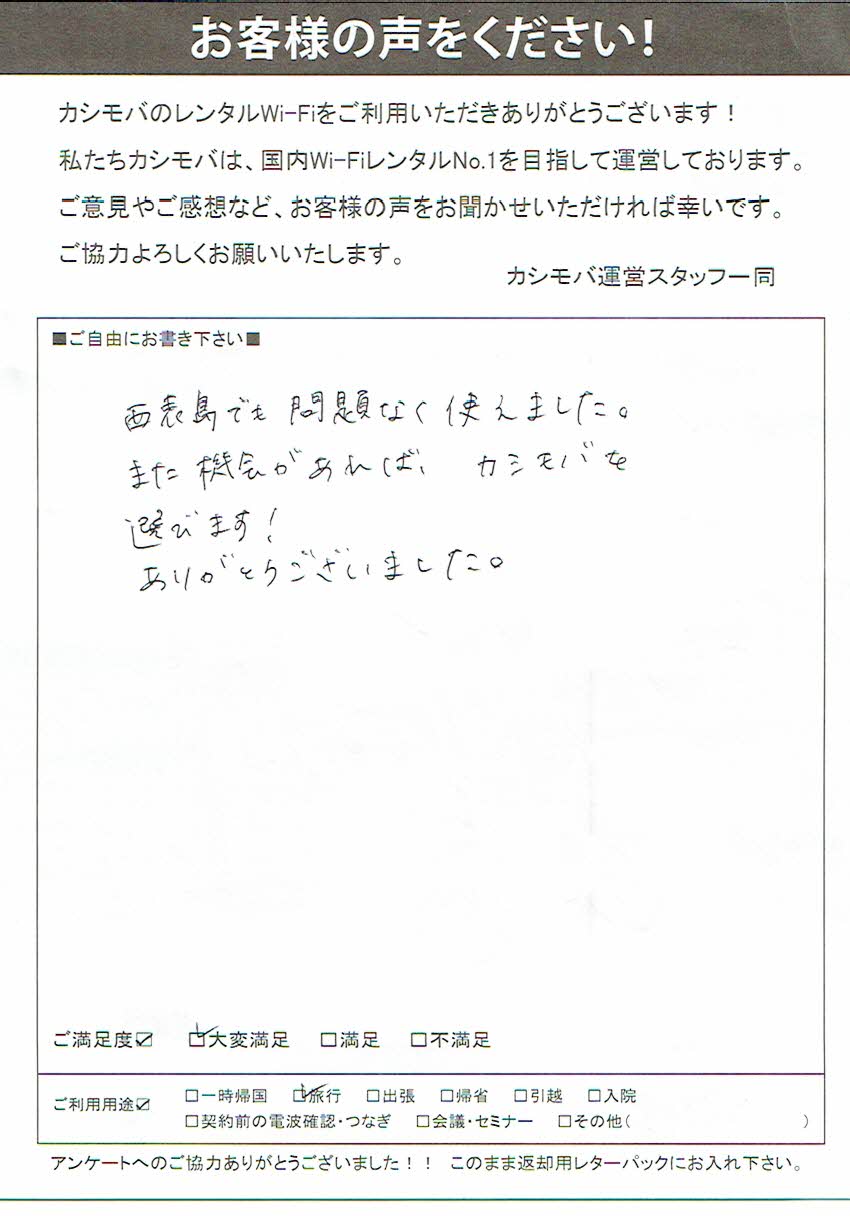 お客様の声をください!
カシモバのレンタルWi-Fiをご利用いただきありがとうございます！
私たちカシモバは、国内Wi-FiレンタルNo.1を目指して運営しております。
ご意見やご感想など、お客様の声をお聞かせいただければ幸いです。
ご協力よろしくお願いいたします。
カシモバ運営スタッフ一同
■ご自由にお書き下さい■
西表島でも問題なく使えました。
また機会があれば、カシモバを
選びます!
ありがとうございました。
ご満足度☑ ☑大変満足 □満足 □不満足
ご利用用途☑ □一時帰国 ☑旅行 □出張 □帰省 □引越 □入院
□契約前の電波確認・つなぎ □会議・セミナー □その他( )
アンケートへのご協力ありがとうございました！！ このまま返却用レターパックにお入れ下さい。